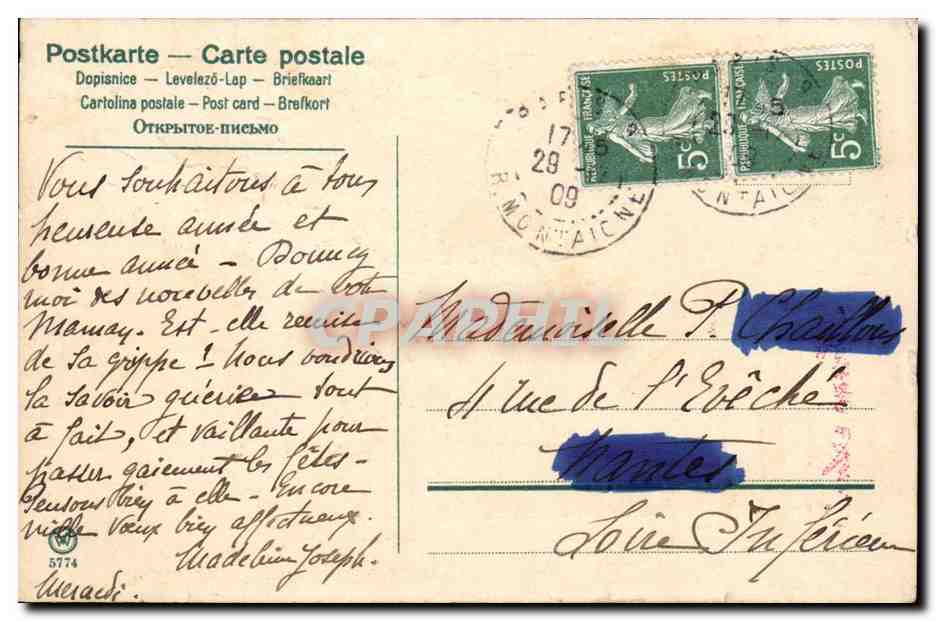 Postkarte — Carte postale
Dopisnice — Levelező-Lap — Briefkaart
Cartolina postale - Post card - Brefkort
Открытое-письмо
POSTES
REPUBLIQUE FRANÇAISE
5c
POSTES
REPUBLIQUE FRANÇAISE
5c
17
29
09
R. MONTAIGNE
Vous souhaitons à tous
heureuse année et
bonne année - Donnez
moi des nouvelles de votre
Maman. Est-elle remise
de sa grippe ! Nous voudrions
la savoir guérie tout
à fait, et vaillante pour
passer gaiement les fêtes-
Pensons bien à elle - Encore
mille vœux bien affectueux.
Madeleine Joseph.
Mercredi.
Mademoiselle P. Chaillous
4 rue de l'Evêché
Nantes
Loire Inférieure
CPAPHIL
5774